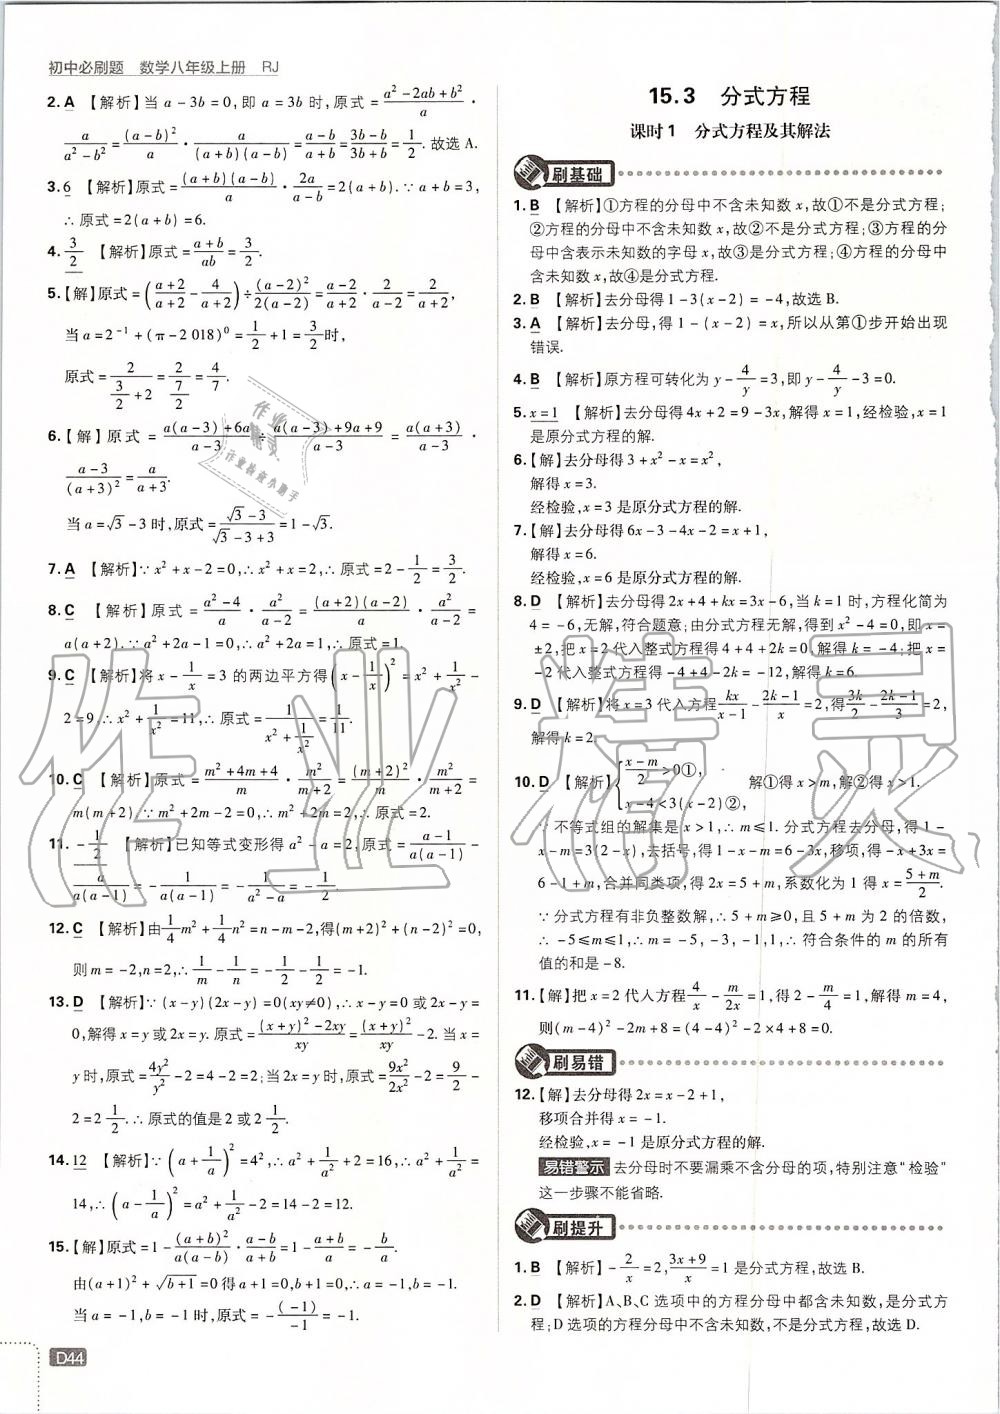 初中必刷题 数学八年级上册 RJ
2. A 【解析】当 a-3b=0,即 a=3b 时,原式=(a²-2ab+b²)/a ·
a/(a²-b²)=(a-b)²/a · a/((a+b)(a-b))=(a-b)/(a+b)=(3b-b)/(3b+b)=1/2. 故选 A.
3. 6 【解析】原式=(a+b)(a-b)/b · 2a/(a-b)=2(a+b). ∵a+b=3,
∴原式=2(a+b)=6.
4. 3/2 【解析】原式=(a+b)/ab=3/2.
5.【解】原式=((a+2)/(a+2)-4/(a+2))÷(a-2)²/(2(a-2))=(a-2)/(a+2)·2/(a-2)=2/(a+2),
当 a=2⁻¹+(π-2 018)⁰=1/2+1=3/2时,
原式=2/(3/2+2)=2/(7/2)=4/7.
6.【解】原式=(a(a-3)+6a)/(a-3)÷(a(a-3)+9a+9)/(a-3)=a(a+3)/(a-3)·
(a-3)/(a+3)²=a/(a+3).
当 a=√3-3时,原式=(√3-3)/(√3-3+3)=1-√3.
7. A 【解析】∵x²+x-2=0,∴x²+x=2,∴原式=2-1/2=3/2.
8. C 【解析】原式=(a²-4)/a·a²/(a-2)=(a+2)(a-2)/a·a²/(a-2)=
a(a+2). ∵a²+2a-1=0,∴a²+2a=1,∴原式=1.
9. C 【解析】将 x-1/x=3 的两边平方得(x-1/x)²=x²+1/x²-
2=9,∴x²+1/x²=11,∴原式=1/(x²+1/x²)=1/11.
10. C 【解析】原式=(m²+4m+4)/m·m²/(m+2)=(m+2)²/m·m²/(m+2)=
m(m+2). ∵m²+2m-2=0,∴m²+2m=2,∴原式=2.
11. -1/2 【解析】已知等式变形得 a²-a=2,原式=(a-1)/(a(a-1))-
a/(a(a-1))=-1/(a(a-1))=-1/(a²-a)=-1/2.
12. C 【解析】由1/4m²+1/4n²=n-m-2,得(m+2)²+(n-2)²=0,
则 m=-2,n=2,∴1/m-1/n=-1/2-1/2=-1.
13. D 【解析】∵(x-y)(2x-y)=0(xy≠0),∴x-y=0 或 2x-y=
0,解得 x=y 或 2x=y. 原式=((x+y)²-2xy)/xy=(x+y)²/xy-2. 当 x=
y 时,原式=4y²/y²-2=4-2=2;当 2x=y 时,原式=9x²/2x²-2=9/2-
2=2 1/2. ∴原式的值是 2 或 2 1/2.
14. 12 【解析】∵(a+1/a)²=4²,∴a²+1/a²+2=16,∴a²+1/a²=
14,∴(a-1/a)²=a²+1/a²-2=14-2=12.
15.【解】原式=1-(a+b)²/(a(a-b))·(a-b)/(a+b)=1-(a+b)/a=-b/a.
由(a+1)²+√(b+1)=0 得 a+1=0,b+1=0,∴a=-1,b=-1.
当 a=-1,b=-1 时,原式=-(-1)/-1=-1.
D44
15.3 分式方程
课时1 分式方程及其解法
刷基础
1. B 【解析】①方程的分母中不含未知数 x,故①不是分式方程;
②方程的分母中不含未知数 x,故②不是分式方程;③方程的分
母中含表示未知数的字母 x,故③是分式方程;④方程的分母中
含未知数 x,故④是分式方程.
2. B 【解析】去分母得 1-3(x-2)=-4,故选 B.
3. A 【解析】去分母,得 1-(x-2)=x,所以从第①步开始出现
错误.
4. B 【解析】原方程可转化为 y-4/y=3,即 y-4/y-3=0.
5. x=1 【解析】去分母得 4x+2=9-3x,解得 x=1,经检验,x=1
是原分式方程的解.
6.【解】去分母得 3+x²-x=x²,
解得 x=3.
经检验,x=3 是原分式方程的解.
7.【解】去分母得 6x-3-4x-2=x+1,
解得 x=6.
经检验,x=6 是原分式方程的解.
8. D 【解析】去分母得 2x+4+kx=3x-6,当 k=1 时,方程化简为
4=-6,无解,符合题意;由分式方程无解,得到 x²-4=0,即 x=
±2,把 x=2 代入整式方程得 4+4+2k=0,解得 k=-4;把 x=
-2 代入整式方程得 -4+4-2k=-12,解得 k=6.
9. D 【解析】将 x=3 代入方程kx/(x-1)-(2k-1)/x=2,得3k/2-(2k-1)/3=2,
解得 k=2.
10. D 【解析】{(x-m)/2>0①, x-4<3(x-2)②, 解①得 x>m,解②得 x>1.
∵不等式组的解集是 x>1,∴m≤1. 分式方程去分母,得 1-
x-m=3(2-x),去括号,得 1-x-m=6-3x,移项,得 -x+3x=
6-1+m,合并同类项,得 2x=5+m,系数化为 1,得 x=(5+m)/2.
∵分式方程有非负整数解,∴5+m≥0,且 5+m 为 2 的倍数,
∴-5≤m≤1,∴m=-5,-3,-1,1,∴符合条件的 m 的所有
值的和是 -8.
11.【解】把 x=2 代入方程4/x-m/2x=1,得 2-m/4=1,解得 m=4,
则(m-4)²-2m+8=(4-4)²-2×4+8=0.
刷易错
12.【解】去分母得 2x=x-2+1,
移项合并得 x=-1.
经检验,x=-1 是原分式方程的解.
易错警示 去分母时不要漏乘不含分母的项,特别注意“检验”
这一步骤不能省略.
刷提升
1. B 【解析】-2/x=2,(3x+9)/x=1 是分式方程,故选 B.
2. D 【解析】A、B、C 选项中的方程分母中都含未知数,是分式方
程;D 选项的方程分母中不含未知数,不是分式方程,故选 D.
作业精灵